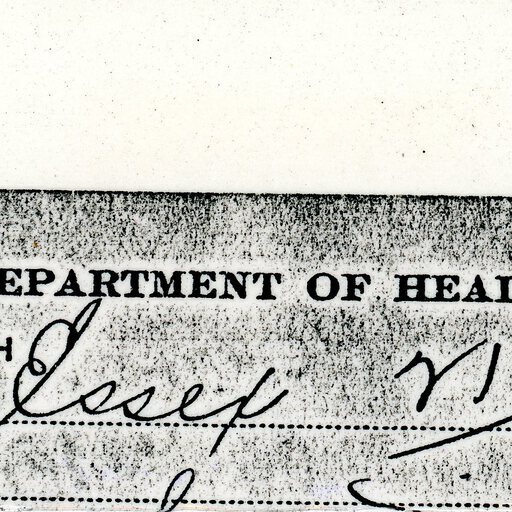 EPARTMENT OF HEAL
H
Essex